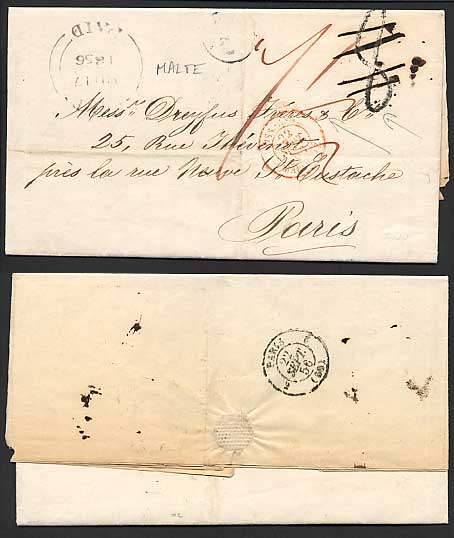 PAID
1856
17
MALTE
Messrs Dreyfus Frères & Co
25, Rue Thévenot
près la rue Neuve St Eustache
Paris
PARIS
22
SEPT.
56
(60)